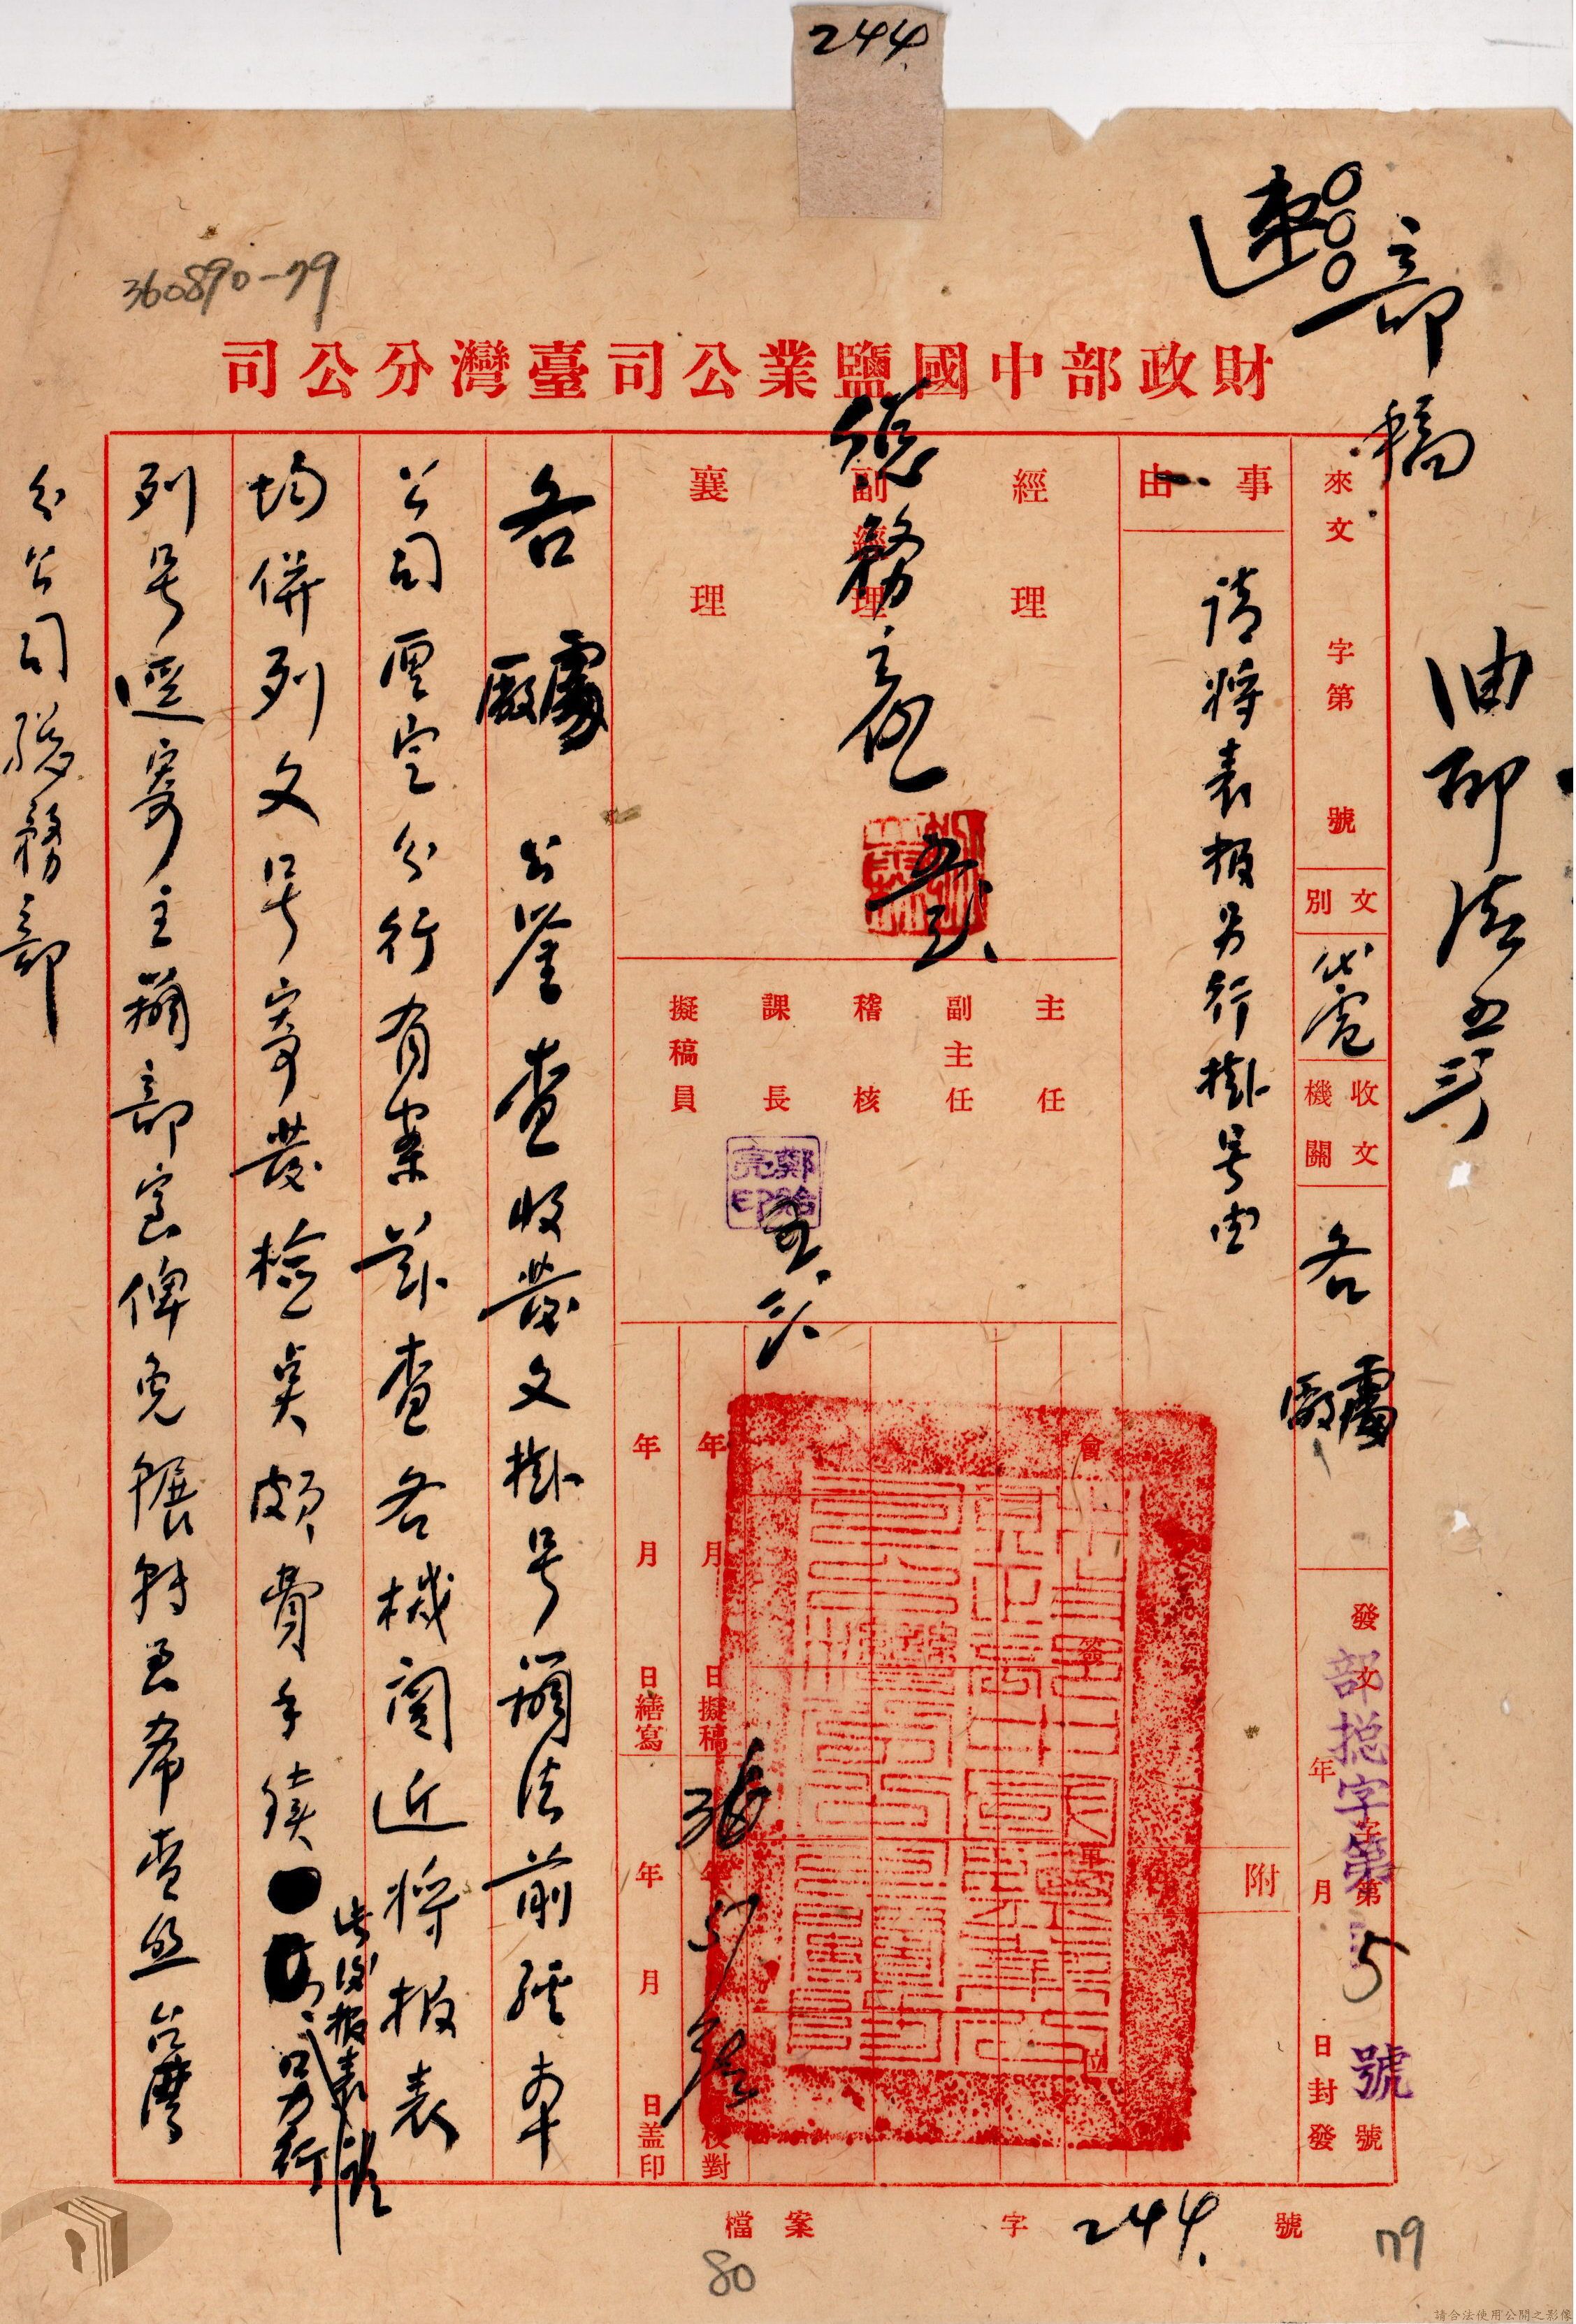 244
速
部稿
360890-79
財政部中國鹽業公司臺灣分公司
油印法
來文
字第
號
文別
代電
收文機關
各處廠
發文
部總字第5號
字第
號
年
月
日封發
事由
請將表報另行掛号由
附
經理
副經理
襄理
總務部
主任
副主任
稽核
課長
擬稿員
會
簽
單
立
年
月
日擬稿
年
校對
年
月
日繕寫
年
月
日盖印
各處廠公鑒查收發文掛号辦法前經本
公司厘定分行有案茲查各機関近將報表
均併列文号寄發檢奌頗費手續此後報表請另行
列号逕寄主辦部室俾免輾轉為希查照台灣
分公司總務部
檔案
字
244
號
79
80
請合法使用公開之影像